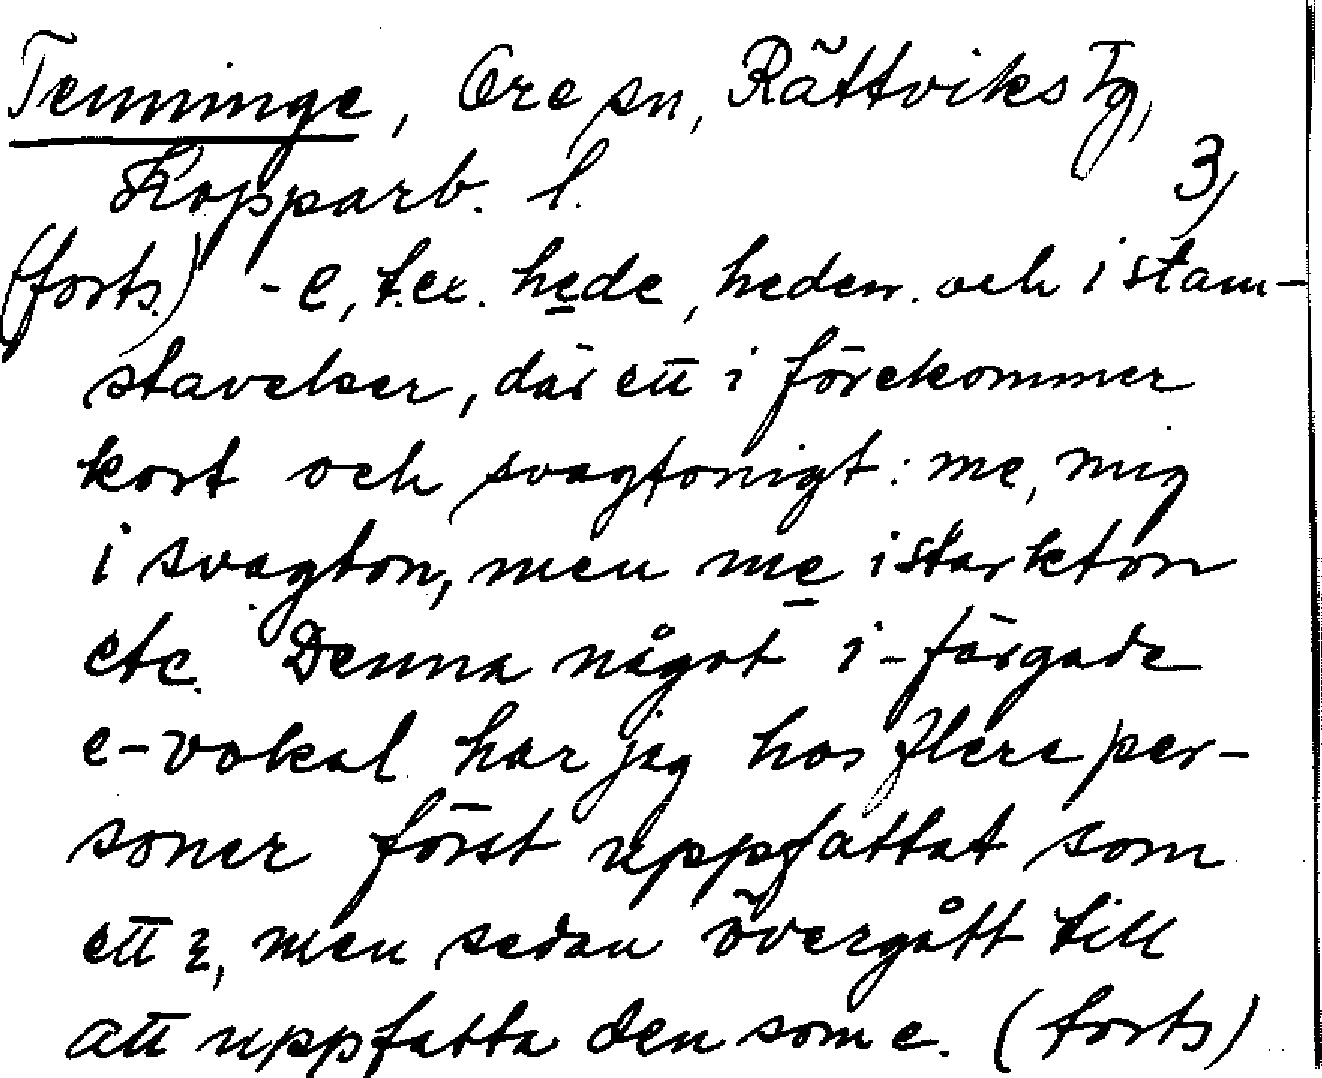 Tenninge, Ore sn, Rättviks Tg,
Kopparb. l. 3,
(forts.) -e, t.ex. hede, heden. och i stam-
stavelser, där ett i förekommer
kort och svagtonigt: me, mig
i svagton, men me i starkton
etc. Denna något i-färgade
e-vokal har jag hos flera per-
soner först uppfattat som
ett , men sedan övergått till
att uppfatta den som e. (forts)